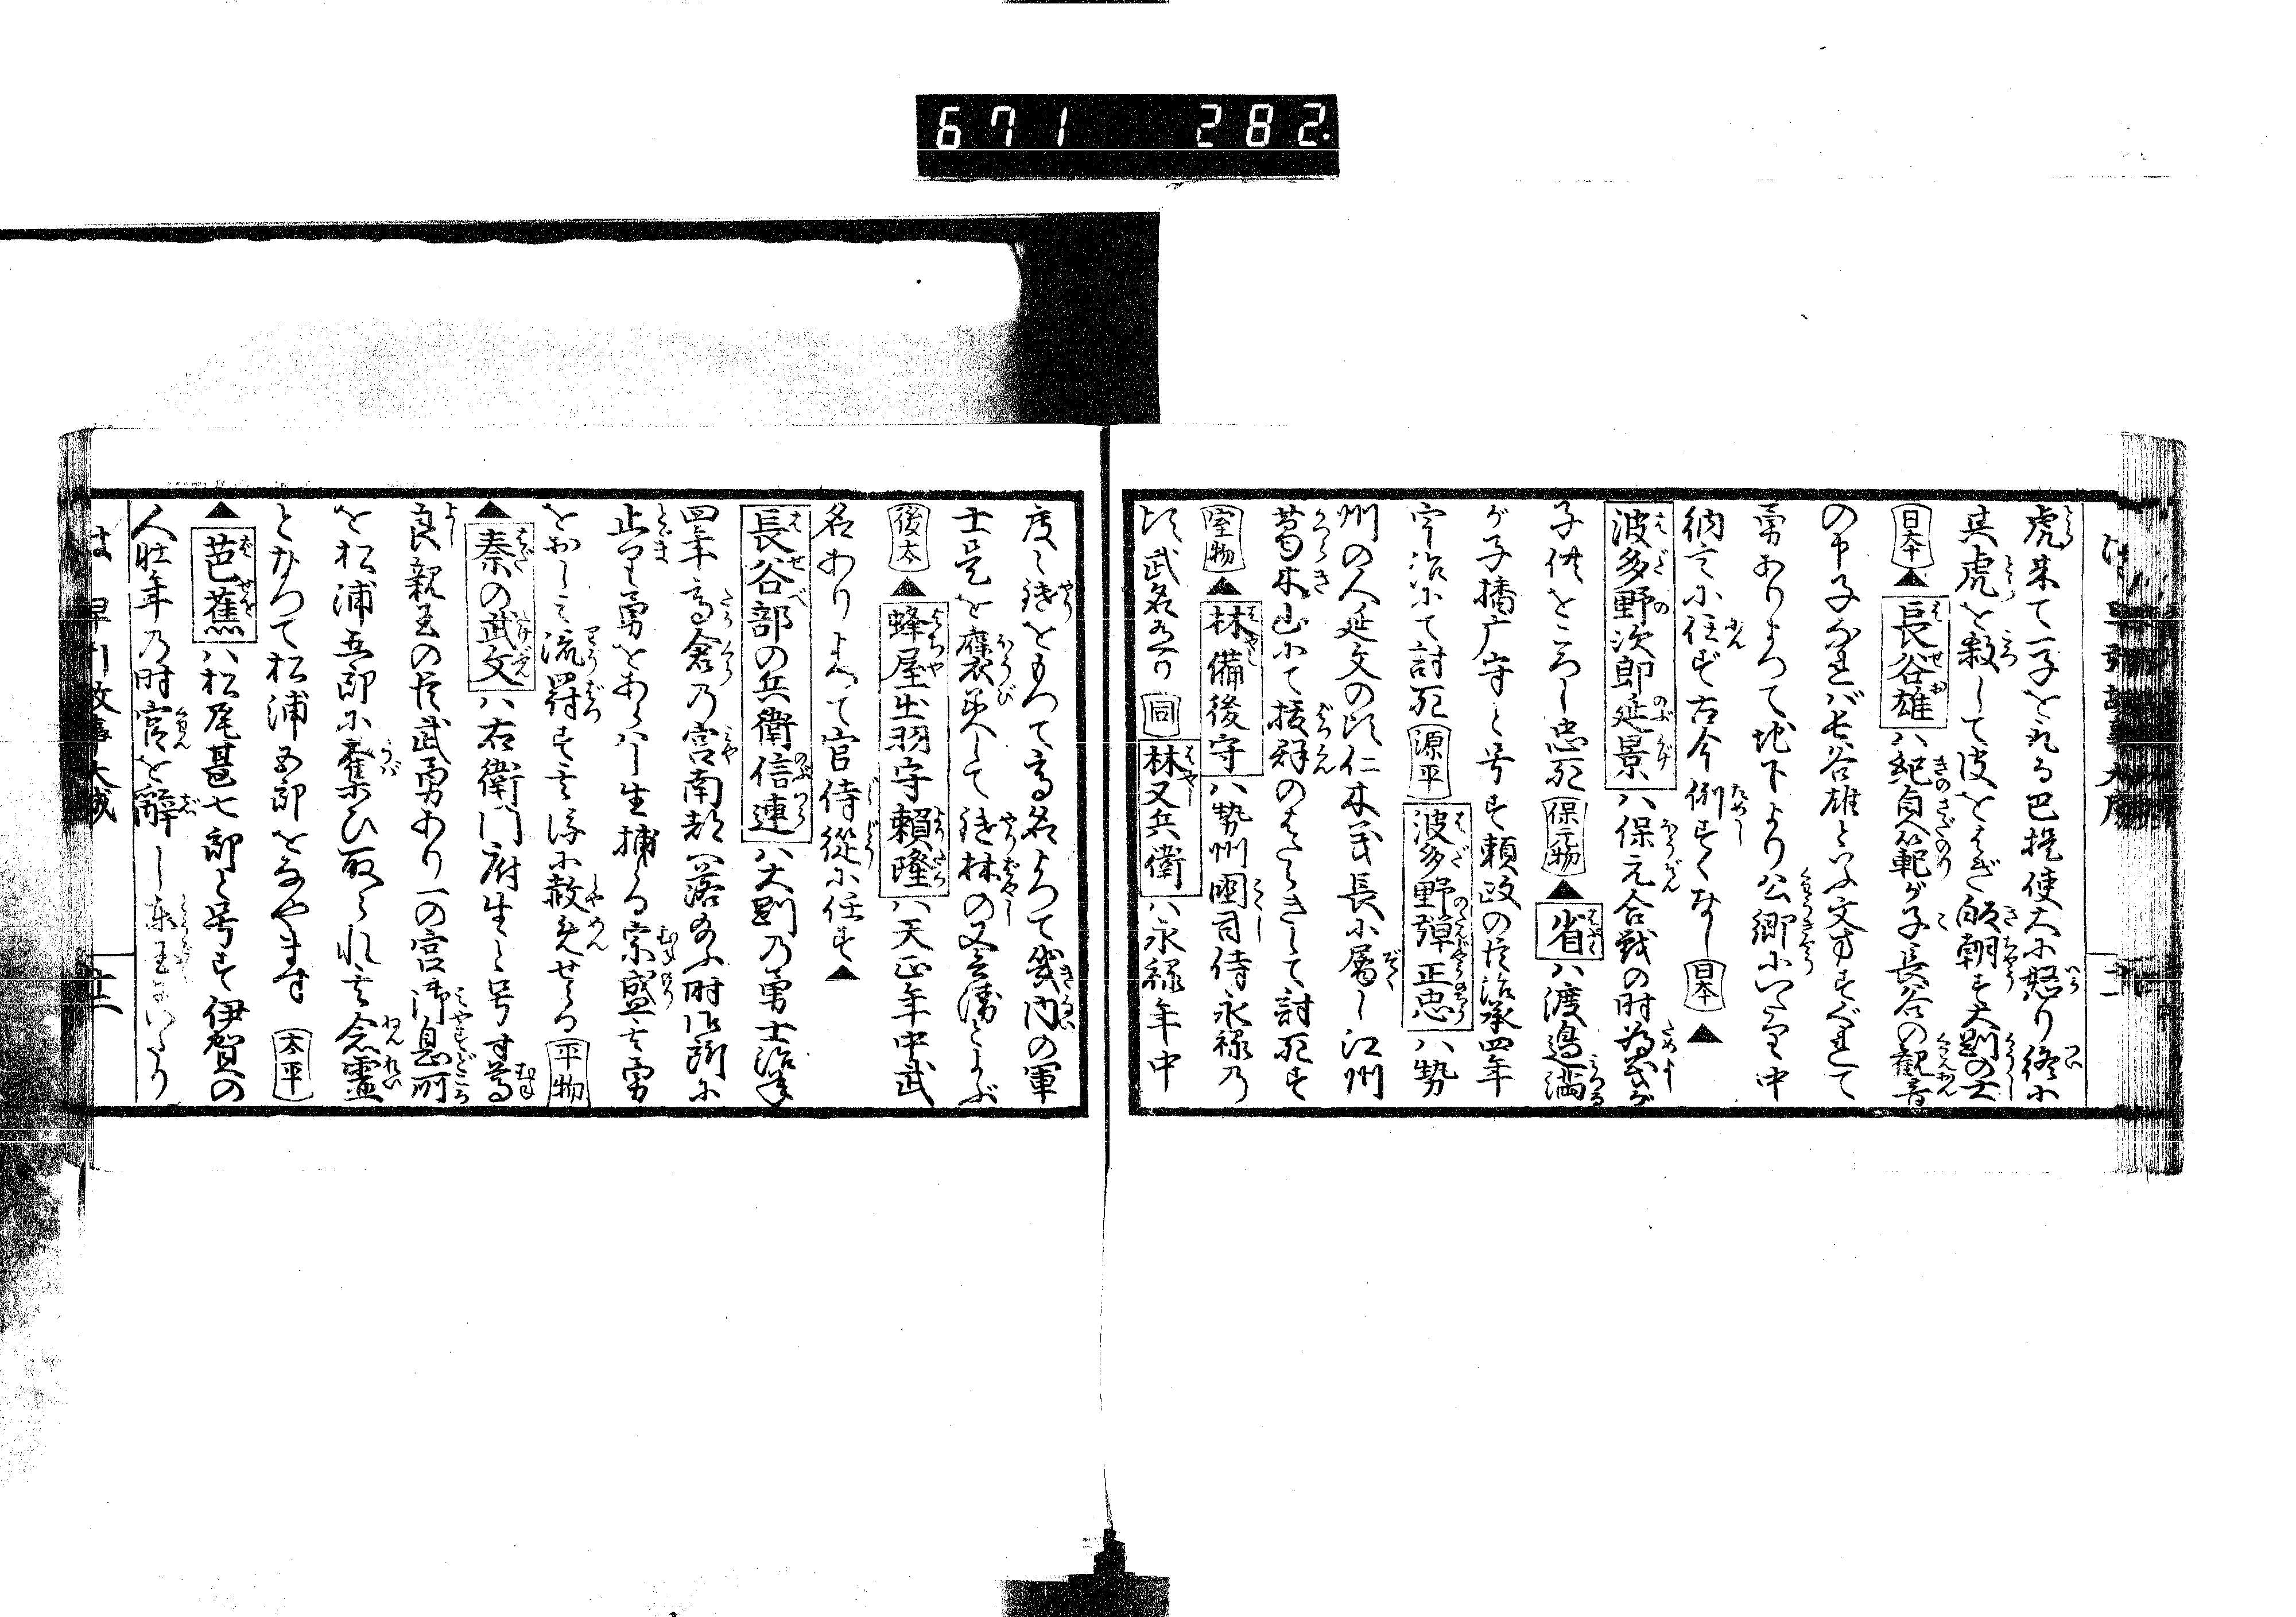 671 282.
虎来て一子をとる巴提使大に怒り終に
其虎を殺して皮をはぎ皈朝す大剛の士
日本▲長谷雄ハ紀貞範が子長谷の観音
の申子なれバ長谷雄といふ文才すぐれて
勇ありよつて地下より公卿にいたり中
納言に任ず古今例すくなし日本▲
波多野次郎延景ハ保元合戦の時為義が
子供をころし忠死保元物▲省ハ渡邉満
が子播广守と号す頼政の臣治承四年
宇治にて討死源平波多野弾正忠ハ勢
州の人延文の頃仁木義長に属し江州
葛木山にて抜群のはたらきして討死す
室物▲林備後守ハ勢州国司侍永禄乃
頃武名有り同林又兵衛ハ永禄年中
度々鎗をもつて高名よつて畿内の軍
士是を褒美して鎗林の又兵衛とよぶ
後太▲蜂屋出羽守頼隆ハ天正年中武
名ありよつて官侍従に任す▲
長谷部の兵衛信連ハ大剛乃勇士治承
四年高倉乃宮南都へ落給ふ時御所に
止り勇をあらハし生捕らる宗盛其勇
をおしみ流罪す其後に赦免せらる平物
▲秦の武文ハ右衛門府生と号す尊
良親王の臣武勇あり一の宮御息所
を松浦五郎に奪ひ取られ其念霊
となつて松浦五郎をなやます太平
▲芭蕉ハ松尾甚七郎と号す伊賀の
人壮年乃時官を辭し
は 早引故事大成